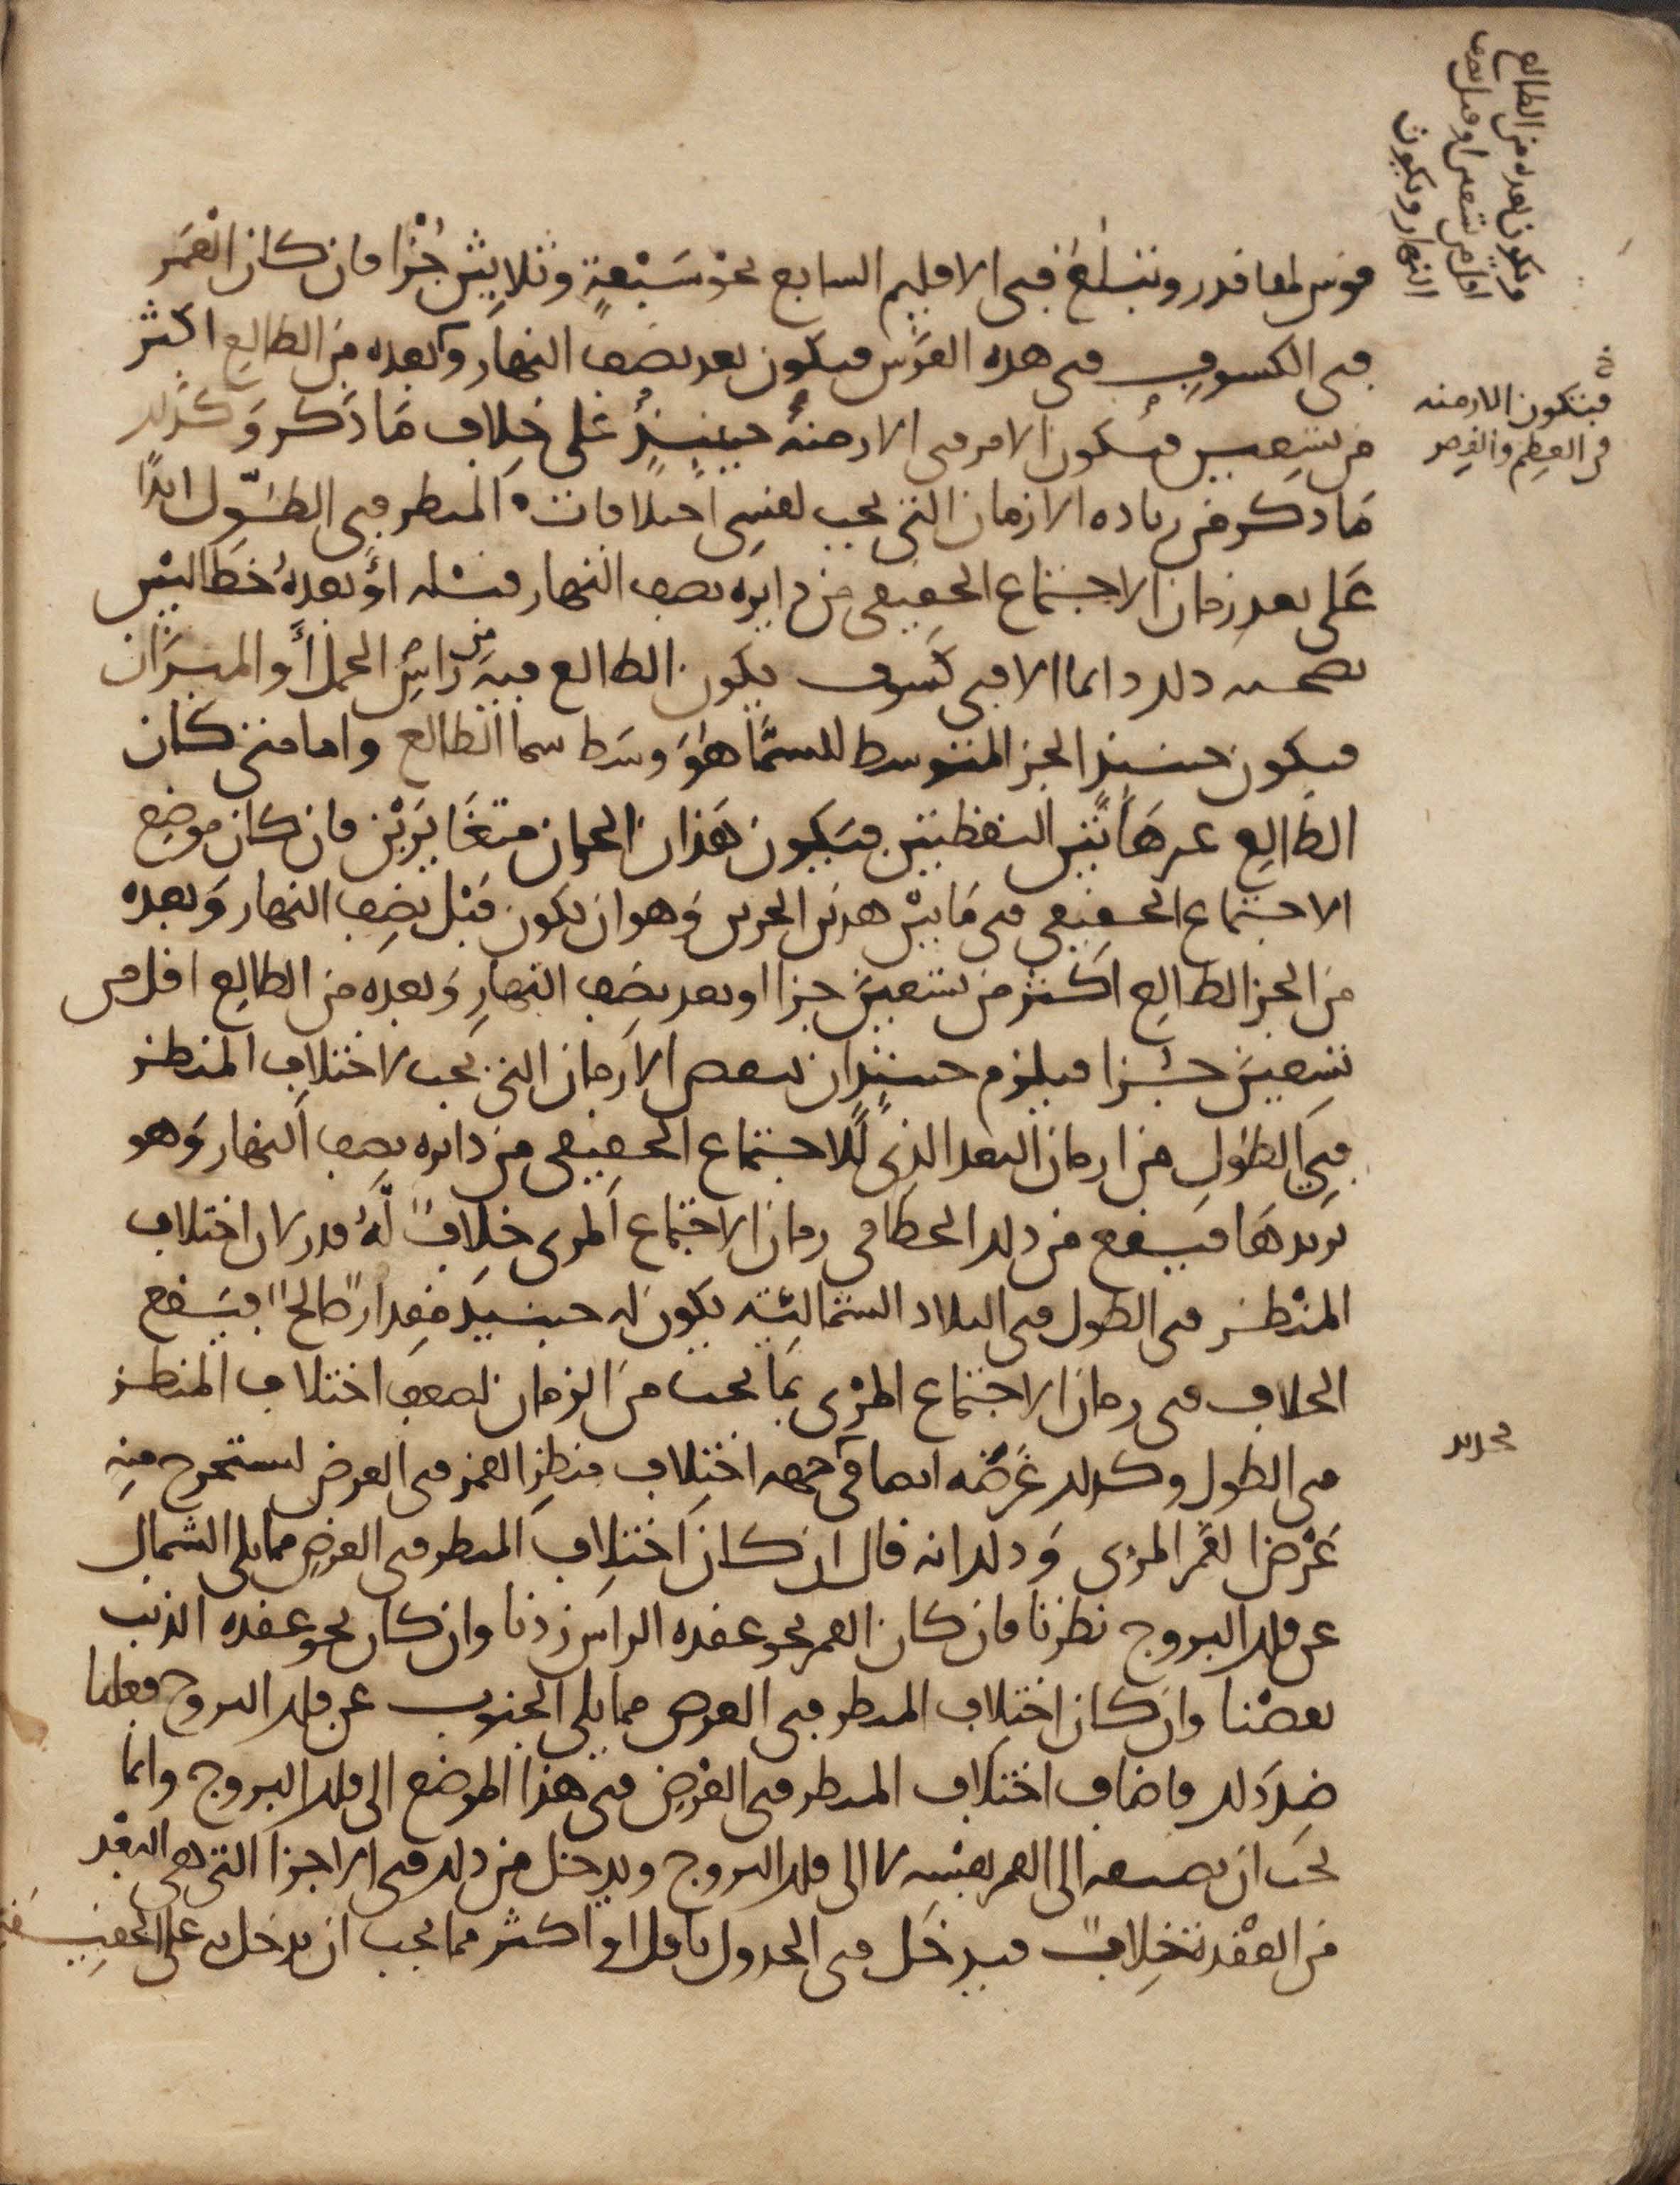 قوس لها قدر وتبلغ في الاقليم السابع نحو سَبْعةٍ وثلاثين جُزْا فان كان القمَر
في الكسوفِ في هذه القوس فيكون بعد نصف النهار وبعده من الطالع اكثر
من تسعين فيكون الامر في الازمنة حينئذٍ على خلاف مَا ذكر وَكذلك
مَا ذكر من زياده الازمان التي يجب لقسي اختلافات المنظر في الطول ابدًا
عَلى بعد زمان الاجتماع الحقيقي من دايره نصف النهار قبْله اوْ بعدهُ خطا ليْس
ذلك دايما الا في كسوف يكون الطالع فيه من رَاس الحمل أَو الميزان
فيكون حينئذ الجز المتوسط للسمَّا هُوَ وسَط سما الطالع واما متى كان
الطالع غير هَاتين النقطتين فيَكون هَذان الجزان متغَايرَيْن فان كان موضِع
الاجتماع الحقيقي في مَا بيْن هذين الجزين وَهو ان يكون قبْل نصِف النهار وَبعده
من الجز الطالع اكثر من تسعين جزا او بعد نصِف النهارِ وَبعده من الطالِع اقل من
تسعين جُزا فيلزم حينئذٍ ان ينقص الازمان التي يجب لاختلافِ المنظر
في الطولِ من ازمان البعد الذي للاجتماع الحقيقي من دايره نصِف النهار وَهو
يزيدهَا فيَقع من ذلك الخطا في زمان الاجتماع المرى خلافٌ لهُ قدر لان اختلاف
المنْظر في الطول في البلاد الشماليَّة يكون له حينئذ مقدارٌ صالح فيَقع
الخلاف في زمان الاجتماع المرْى بمَا يجب من الزمان لضعف اختلاف المنظر
في الطول وكذلك غَرضه ايضا في جهه اختِلاف منظرِ القمر في العرض ليستخرج منِه
عَرْض القمر المرْى وَذلك انه قال ان كان اختلاِف المنظر في العرضِ مما يلي الشمال
عن فلك البروج نظرنا فان كان القمر نحو عقده الراس زدنا وان كان نحو عقده الذنب
نقصْنا وان كان اختلاف المنظر في العرض مما يلي الجنوب عن فلك البروج فعلنا
ضِدَّ ذلك فاضاف اختلاف المنظر في العَرضِ في هذا الموضع الى فلك البروج وانما
يجَب ان نضيفه الى القمر نفْسه لا الى فلك البروج ويدخل من ذلك في الاجزا التي هي البعْد
من العقْدة خِلافٌ فيدخَل في الجدول باقل او اكثر مما يجب ان يدخل به على الحقيقة
ويكون بعده من الطالع
اقل من تسعين او قبل نصف
النهار ويكون
خ
فيَكون الازمنه
في العِظم والقِصر